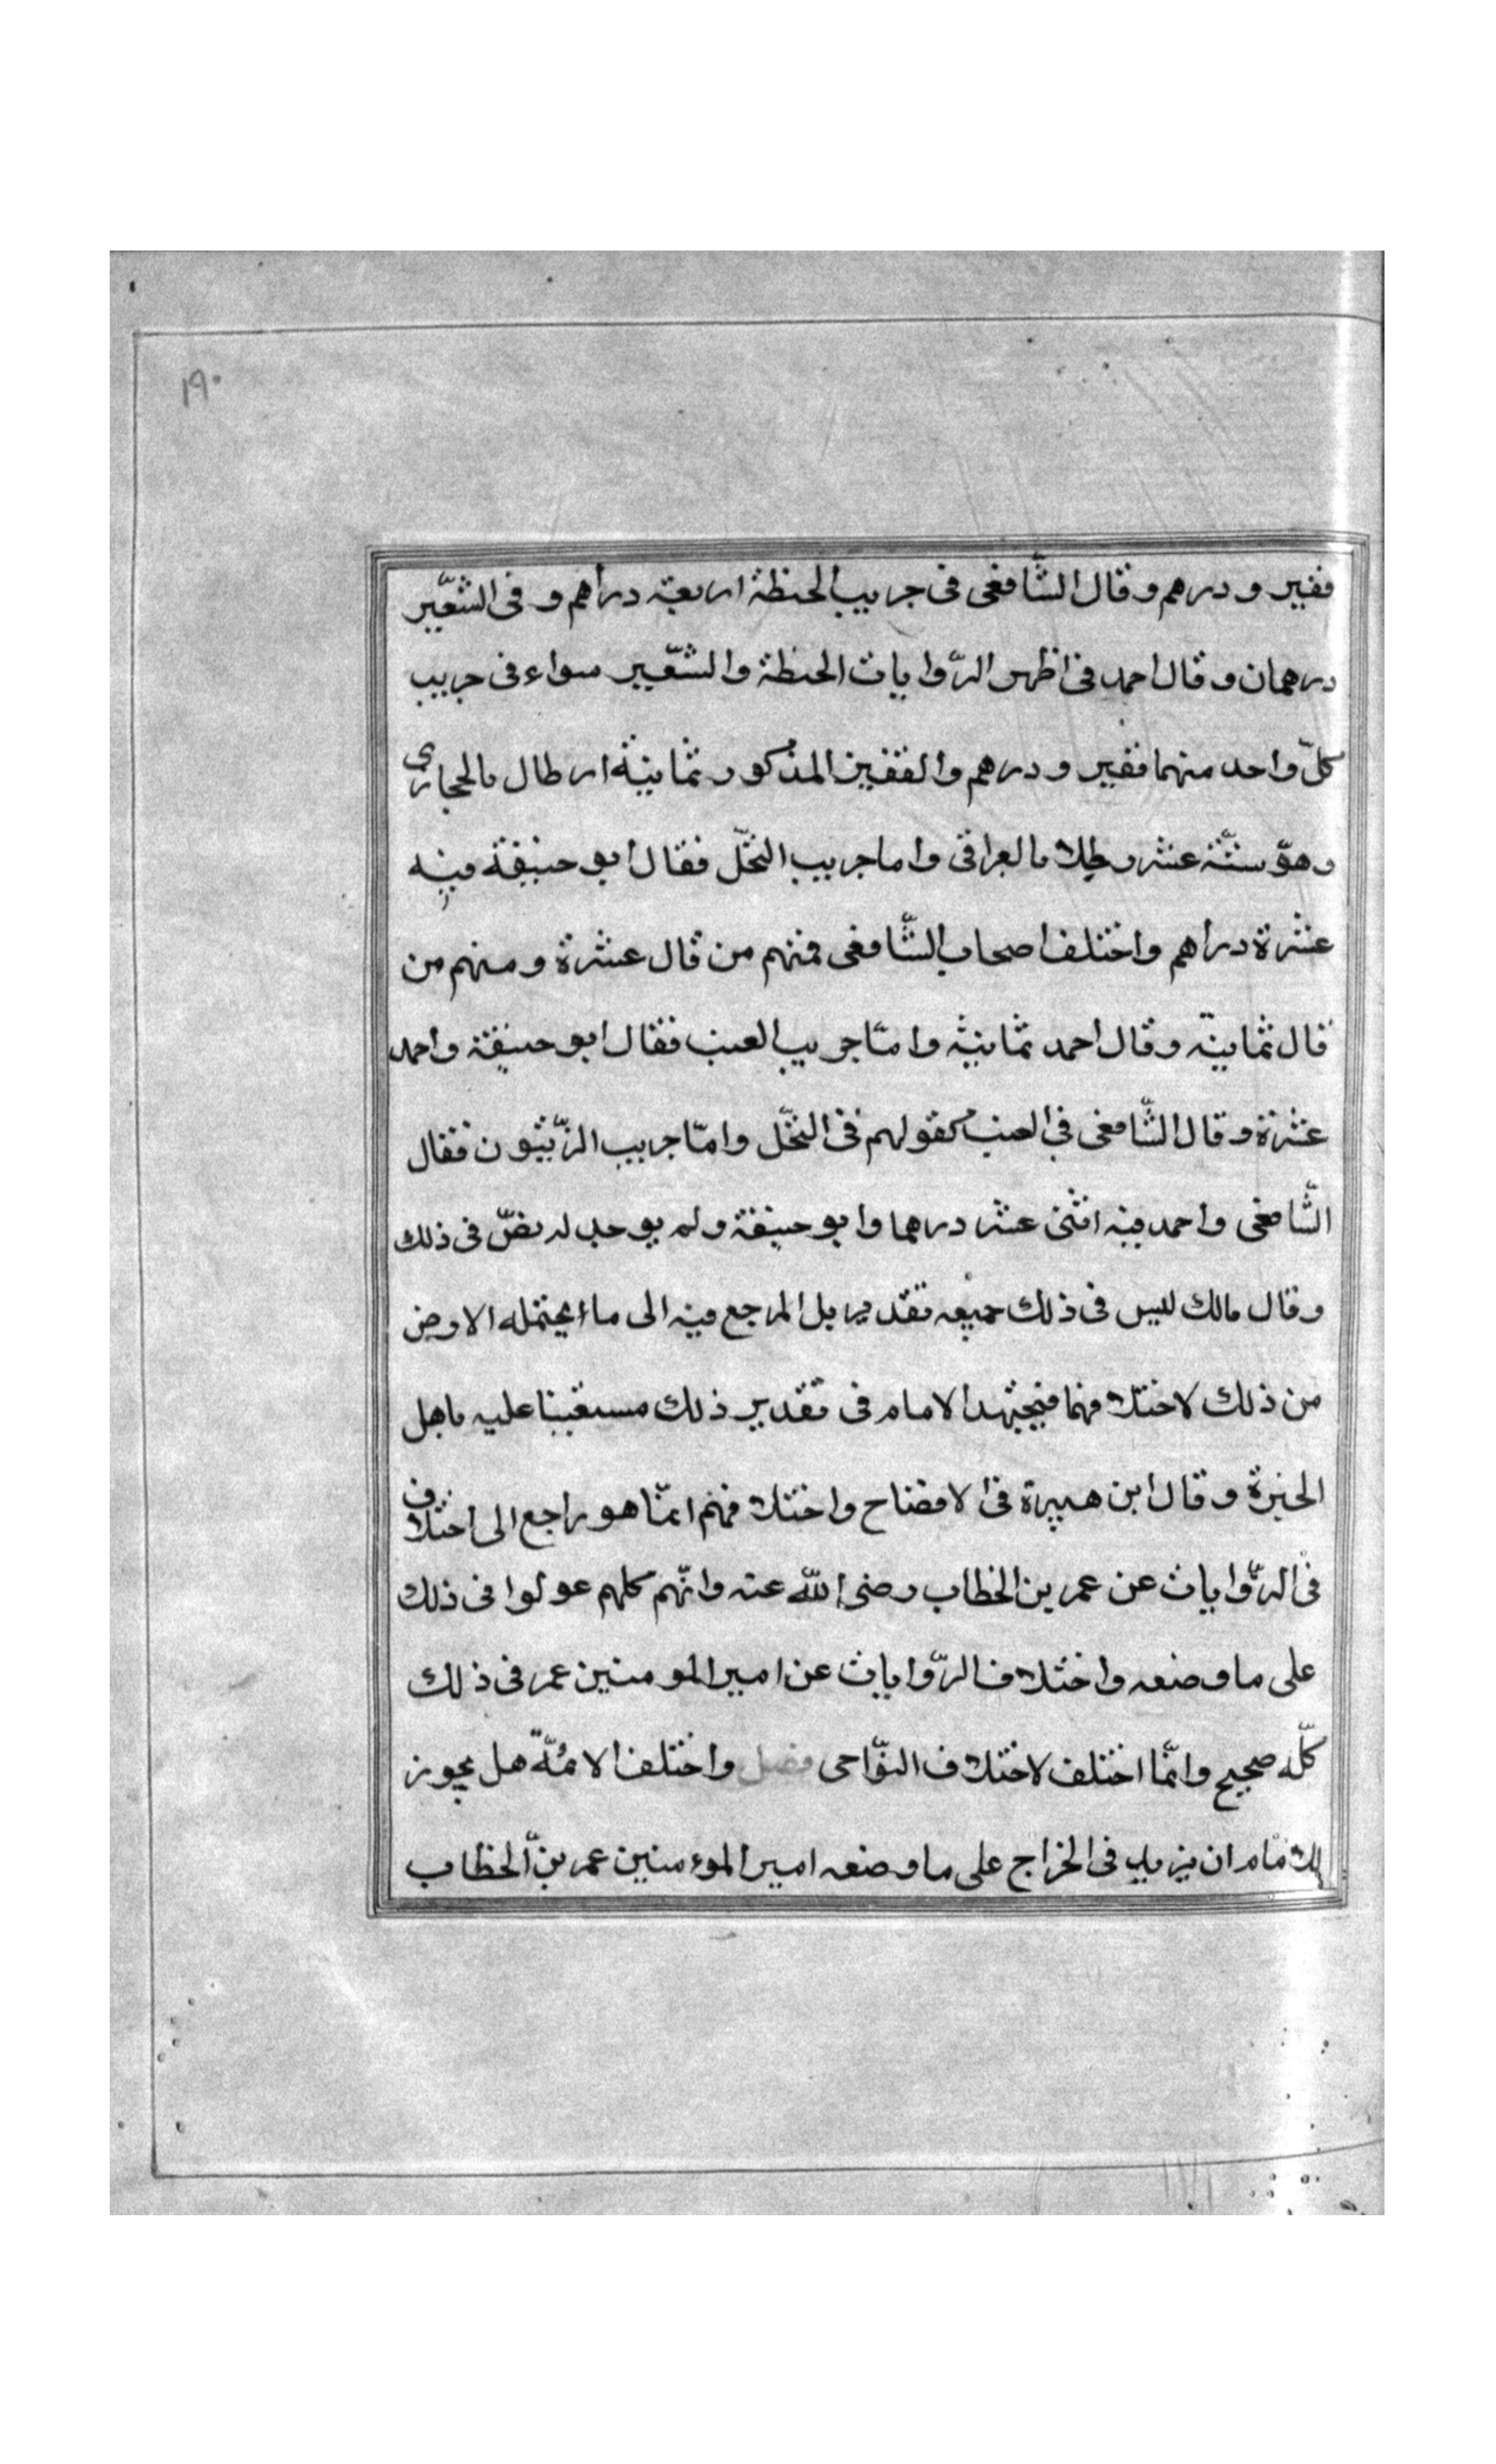 ١٩٠
قفيز ودرهم وقال الشّافعى فى جريب الحنطة اربعة دراهم و فى الشعّير
درهمان وقال احمد فى اظهر الرّوايات الحنطة والشعّير سواء فى جريب
كلّ واحد منهما قفيز ودرهم والقفيز المذكور ثمانية ارطال بالحجازى
وهوّ ستّة عشر رطلا بالعراقى واما جريب النخّل فقال ابو حنيفة فيه
عشرة دراهم واختلف اصحاب الشّافعى فمنهم من قال عشرة ومنهم من
قال ثمانية وقال احمد ثمانية وامّا جريب العنب فقال ابو حنيفة واحمد
عشرة وقال الشّافعى فى العنب كقولهم فى النخّل وامّا جريب الزّيتون فقال
الشّافعى واحمد فيه اثنى عشر درهما وابو حنيفة ولم يوجد له نصّ فى ذلك
وقال مالك ليس فى ذلك جميعه تقدير بل المرجع فيه الى ما يحتمله الارض
من ذلك لاختلافهما فيجتهد الامام فى تقدير ذلك مستعينا عليه باهل
الخبرة وقال ابن هبيرة فى الافضاح واختلافهم انمّا هو راجع الى اختلاف
فى الرّوايات عن عمر بن الخطاب رضى الله عنه وانّهم كلهم عولوا فى ذلك
على ما وضعه واختلاف الرّوايات عن امير المومنين عمر فى ذلك
كلّه صحيح وانمّا اختلف لاختلاف النوّاحى فصل واختلف الائمّة هل يجوز
للامام ان يزيد فى الخراج على ما وضعه امير الموءمنين عمر بنّ الخطاب